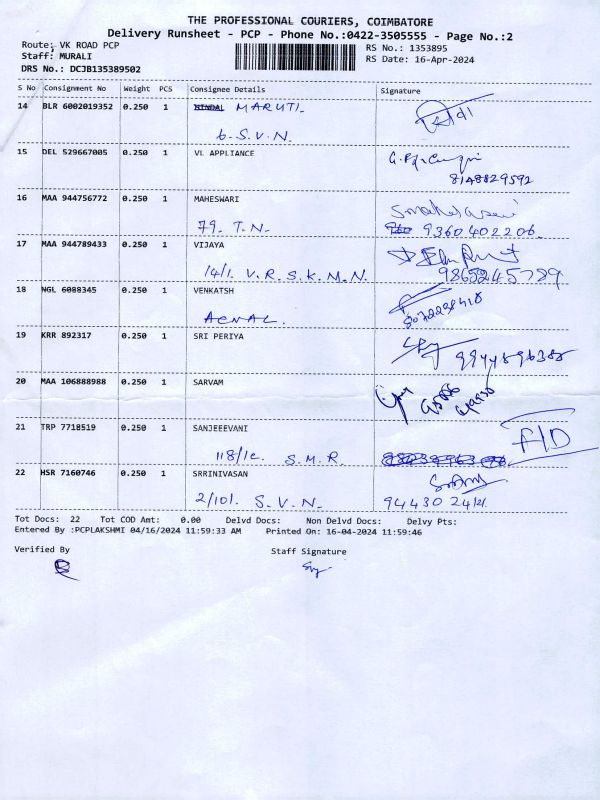 THE PROFESSIONAL COURIERS, COIMBATORE
Delivery Runsheet - PCP - Phone No.:0422-3505555 - Page No.:2
Route: VK ROAD PCP
Staff: MURALI
DRS No.: DCJB135389502
RS No.: 1353895
RS Date: 16-Apr-2024
S No Consignment No Weight PCS Consignee Details Signature
14 BLR 6002019352 0.250 1 MARUTI.
6. S.V.N.
15 DEL 529667005 0.250 1 VL APPLIANCE
8148829592
16 MAA 944756772 0.250 1 MAHESWARI
79. T.N. 9360402206.
17 MAA 944789433 0.250 1 VIJAYA
14/1. V.R.S.K.M.N. 9865245789
18 NGL 6088345 0.250 1 VENKATSH
19 KRR 892317 0.250 1 SRI PERIYA
20 MAA 106888988 0.250 1 SARVAM
21 TRP 7718519 0.250 1 SANJEEEVANI
118/1c. S.M.R. F/D
22 HSR 7160746 0.250 1 SRRINIVASAN
2/101. S.V.N. 94430
Tot Docs: 22 Tot COD Amt: 0.00 Delvd Docs: Non Delvd Docs: Delvy Pts:
Entered By :PCPLAKSHMI 04/16/2024 11:59:33 AM Printed On: 16-04-2024 11:59:46
Verified By Staff Signature